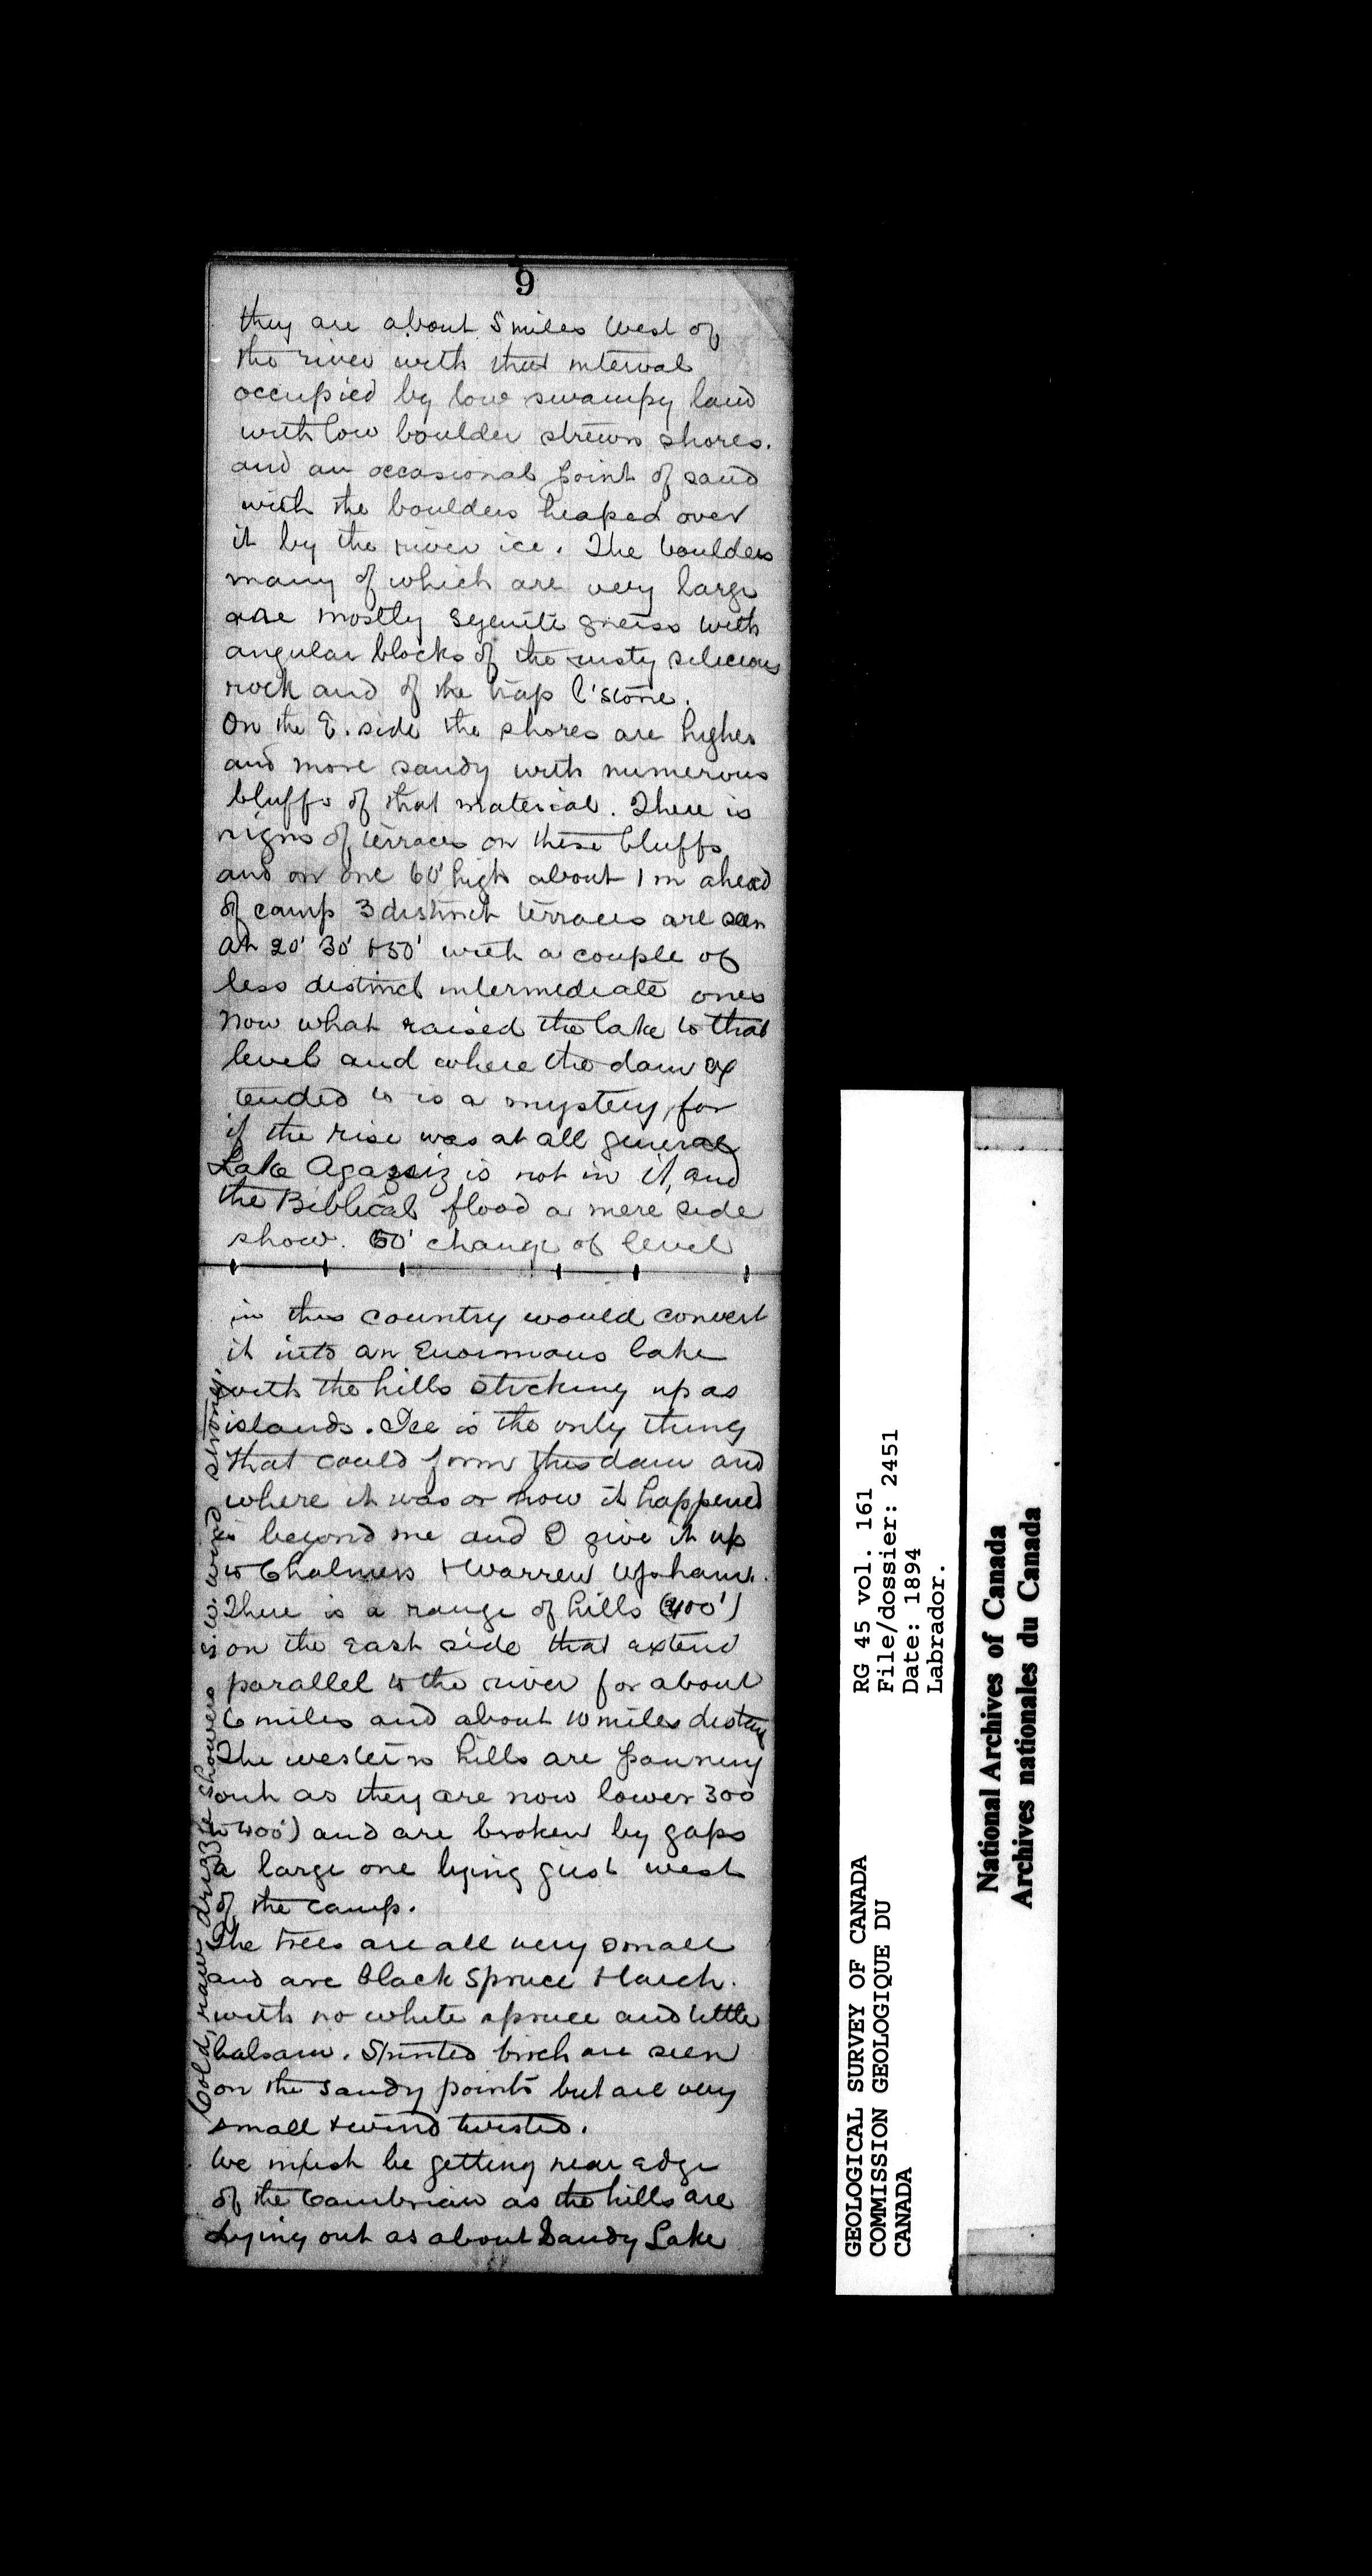 9
they are about 5 miles West of
the river with that interval
occupied by low swampy land
with low boulder strewn shores.
and an occasional point of sand
with the boulders heaped over
it by the river ice. The boulders
many of which are very large
are mostly syenite gneiss with
angular blocks of the rusty silicious
rock and of the trap l'stone.
On the E. side the shores are higher
and more sandy with numerous
bluffs of that material. There is
signs of terraces on these bluffs
and on one 60' high about 1 m ahead
of camp 3 distinct terraces are seen
at 20' 30' + 50' with a couple of
less distinct intermediate ones
Now what raised the lake to that
level and where the dam ex
tended to is a mystery, for
if the rise was at all general
Lake Agassiz is not in it, and
the Biblical flood a mere side
show. 50' change of level
in this country would convert
it into an Enormous lake
with the hills sticking up as
islands. Ice is the only thing
that could form this dam and
where it was or how it happened
is beyond me and I give it up
to Chalmers + Warren Upham.
There is a range of hills (400')
on the East side that extend
parallel to the river for about
6 miles and about 10 miles distant
The western hills are panning
out as they are now lower 300
to 400') and are broken by gaps
a large one lying just west
of the camp.
The trees are all very small
and are black Spruce + larch.
with no white spruce and little
balsam. Stunted birch are seen
on the sandy points but are very
small + wind twisted.
We must be getting near edge
of the Cambrian as the hills are
dying out as about Sandy Lake
Cold, raw drizzle showers S.W. wind strong.
RG 45 vol. 161
File/dossier: 2451
Date: 1894
Labrador.
GEOLOGICAL SURVEY OF CANADA
COMMISSION GEOLOGIQUE DU
CANADA
National Archives of Canada
Archives nationales du Canada